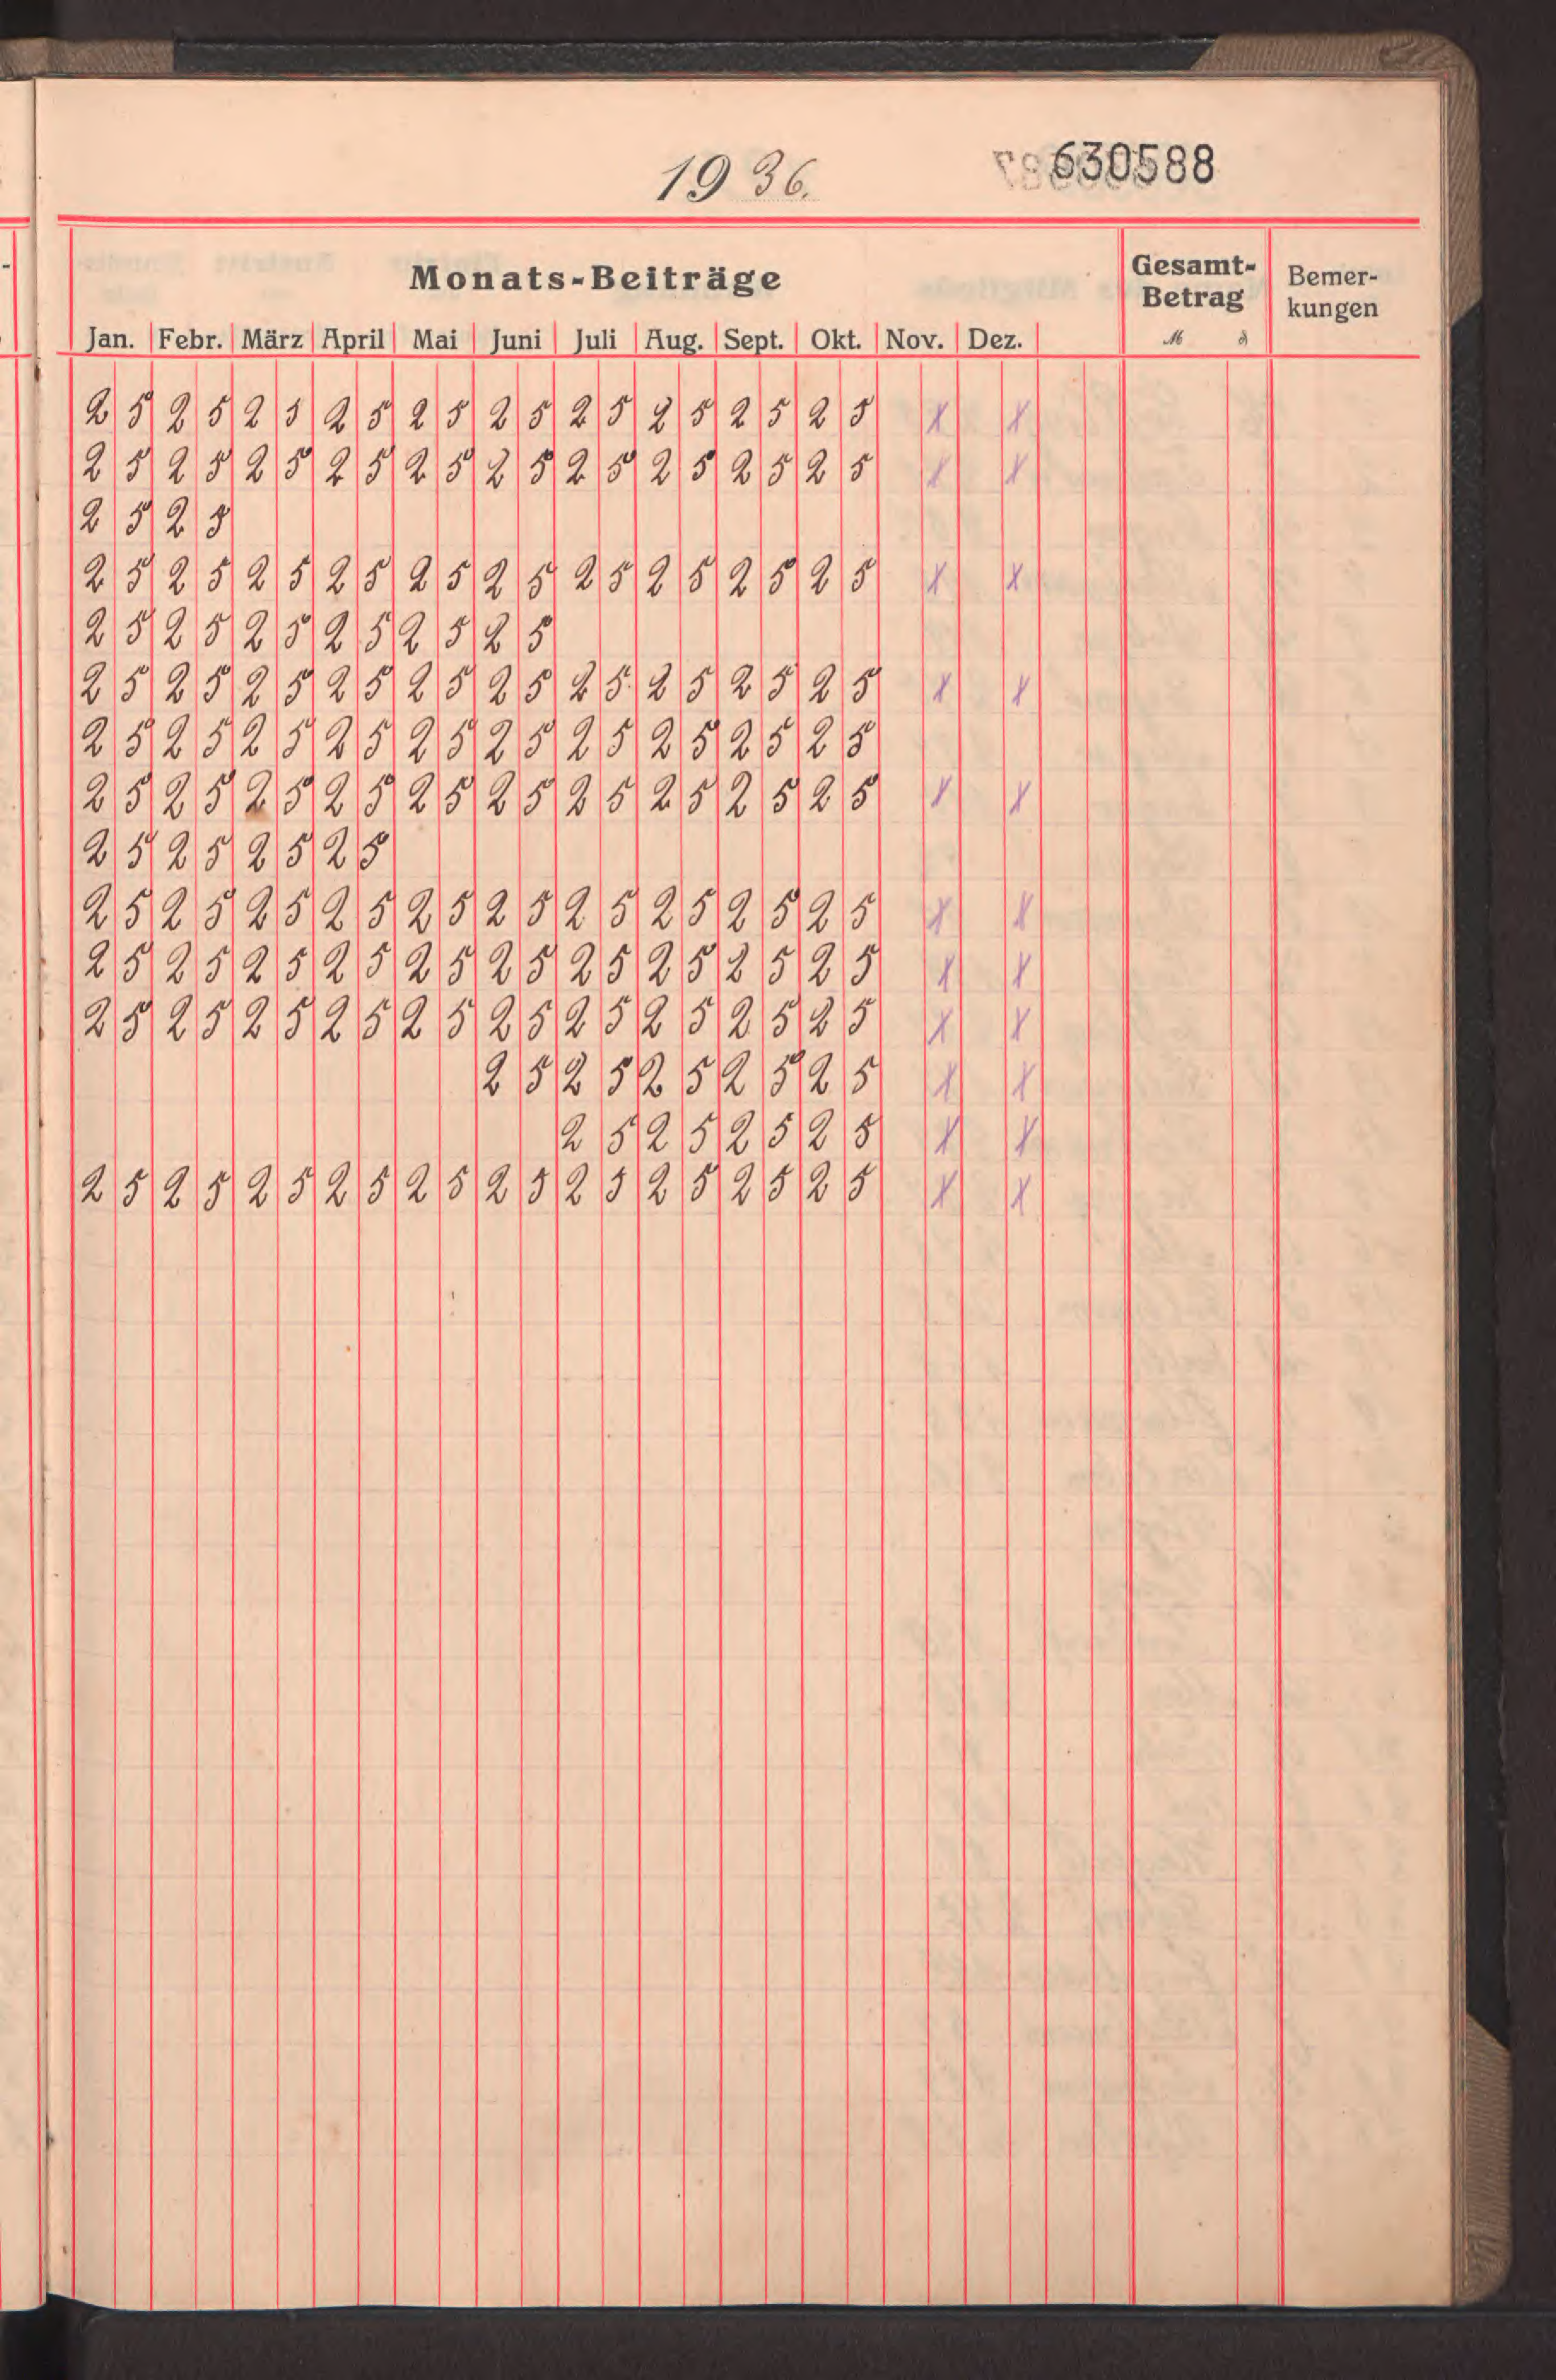 1936.
630588
Monats-Beiträge
Gesamt-Betrag
Bemer-kungen
Jan. Febr. März April Mai Juni Juli Aug. Sept. Okt. Nov. Dez. M ₰
25 25 25 25 25 25 25 25 25 25 X X
25 25 25 25 25 25 25 25 25 25 X X
25 25
25 25 25 25 25 25 25 25 25 25 X X
25 25 25 25 25 25
25 25 25 25 25 25 25 25 25 25 X X
25 25 25 25 25 25 25 25 25 25
25 25 25 25 25 25 25 25 25 25 X X
25 25 25 25
25 25 25 25 25 25 25 25 25 25 X X
25 25 25 25 25 25 25 25 25 25 X X
25 25 25 25 25 25 25 25 25 25 X X
25 25 25 25 25 X X
25 25 25 25 X X
25 25 25 25 25 25 25 25 25 25 X X